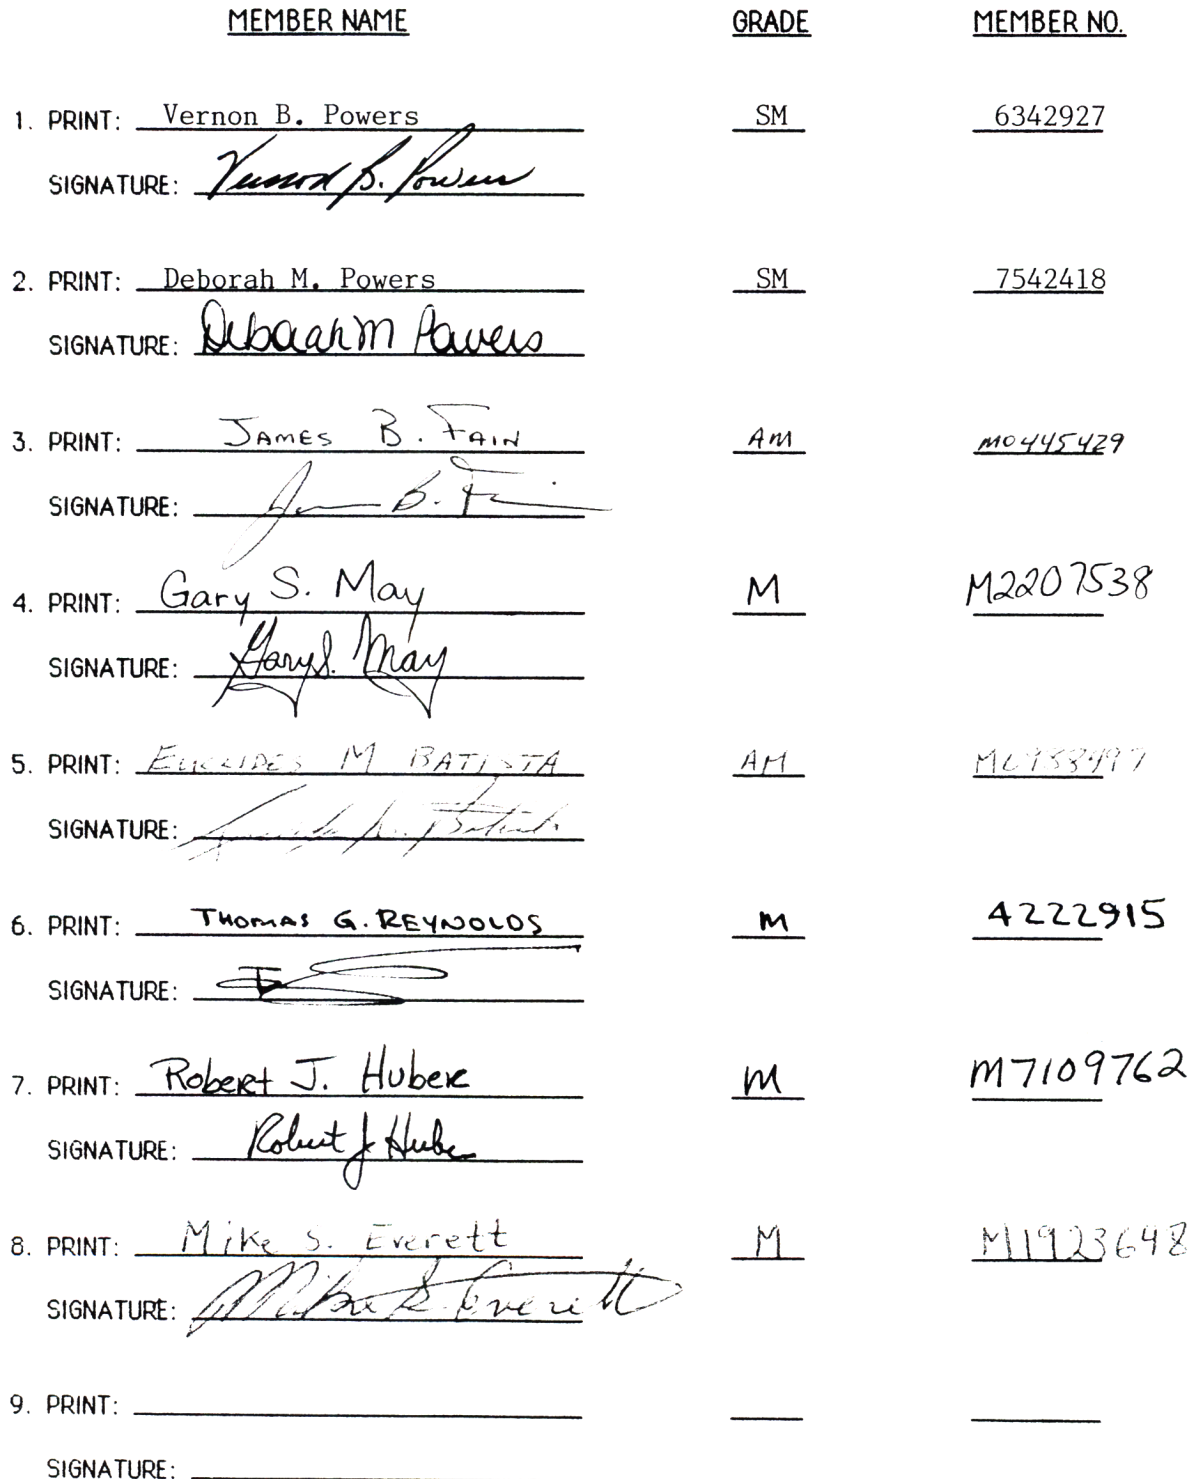 MEMBER NAME GRADE MEMBER NO.
1. PRINT: Vernon B. Powers SM 6342927
SIGNATURE: Vernon B. Powers
2. PRINT: Deborah M. Powers SM 7542418
SIGNATURE: Deborah M Powers
3. PRINT: JAMES B. FAIN AM M0445429
SIGNATURE: B. F
4. PRINT: Gary S. May M M2207538
SIGNATURE: Gary S. May
5. PRINT: EUCLIDES M BATISTA AM
SIGNATURE: Batista
6. PRINT: THOMAS G. REYNOLDS M 4222915
SIGNATURE:
7. PRINT: Robert J. Huber M M7109762
SIGNATURE: Robert J Huber
8. PRINT: Mike S. Everett M M1923648
SIGNATURE: Mike S. Everett
9. PRINT:
SIGNATURE: